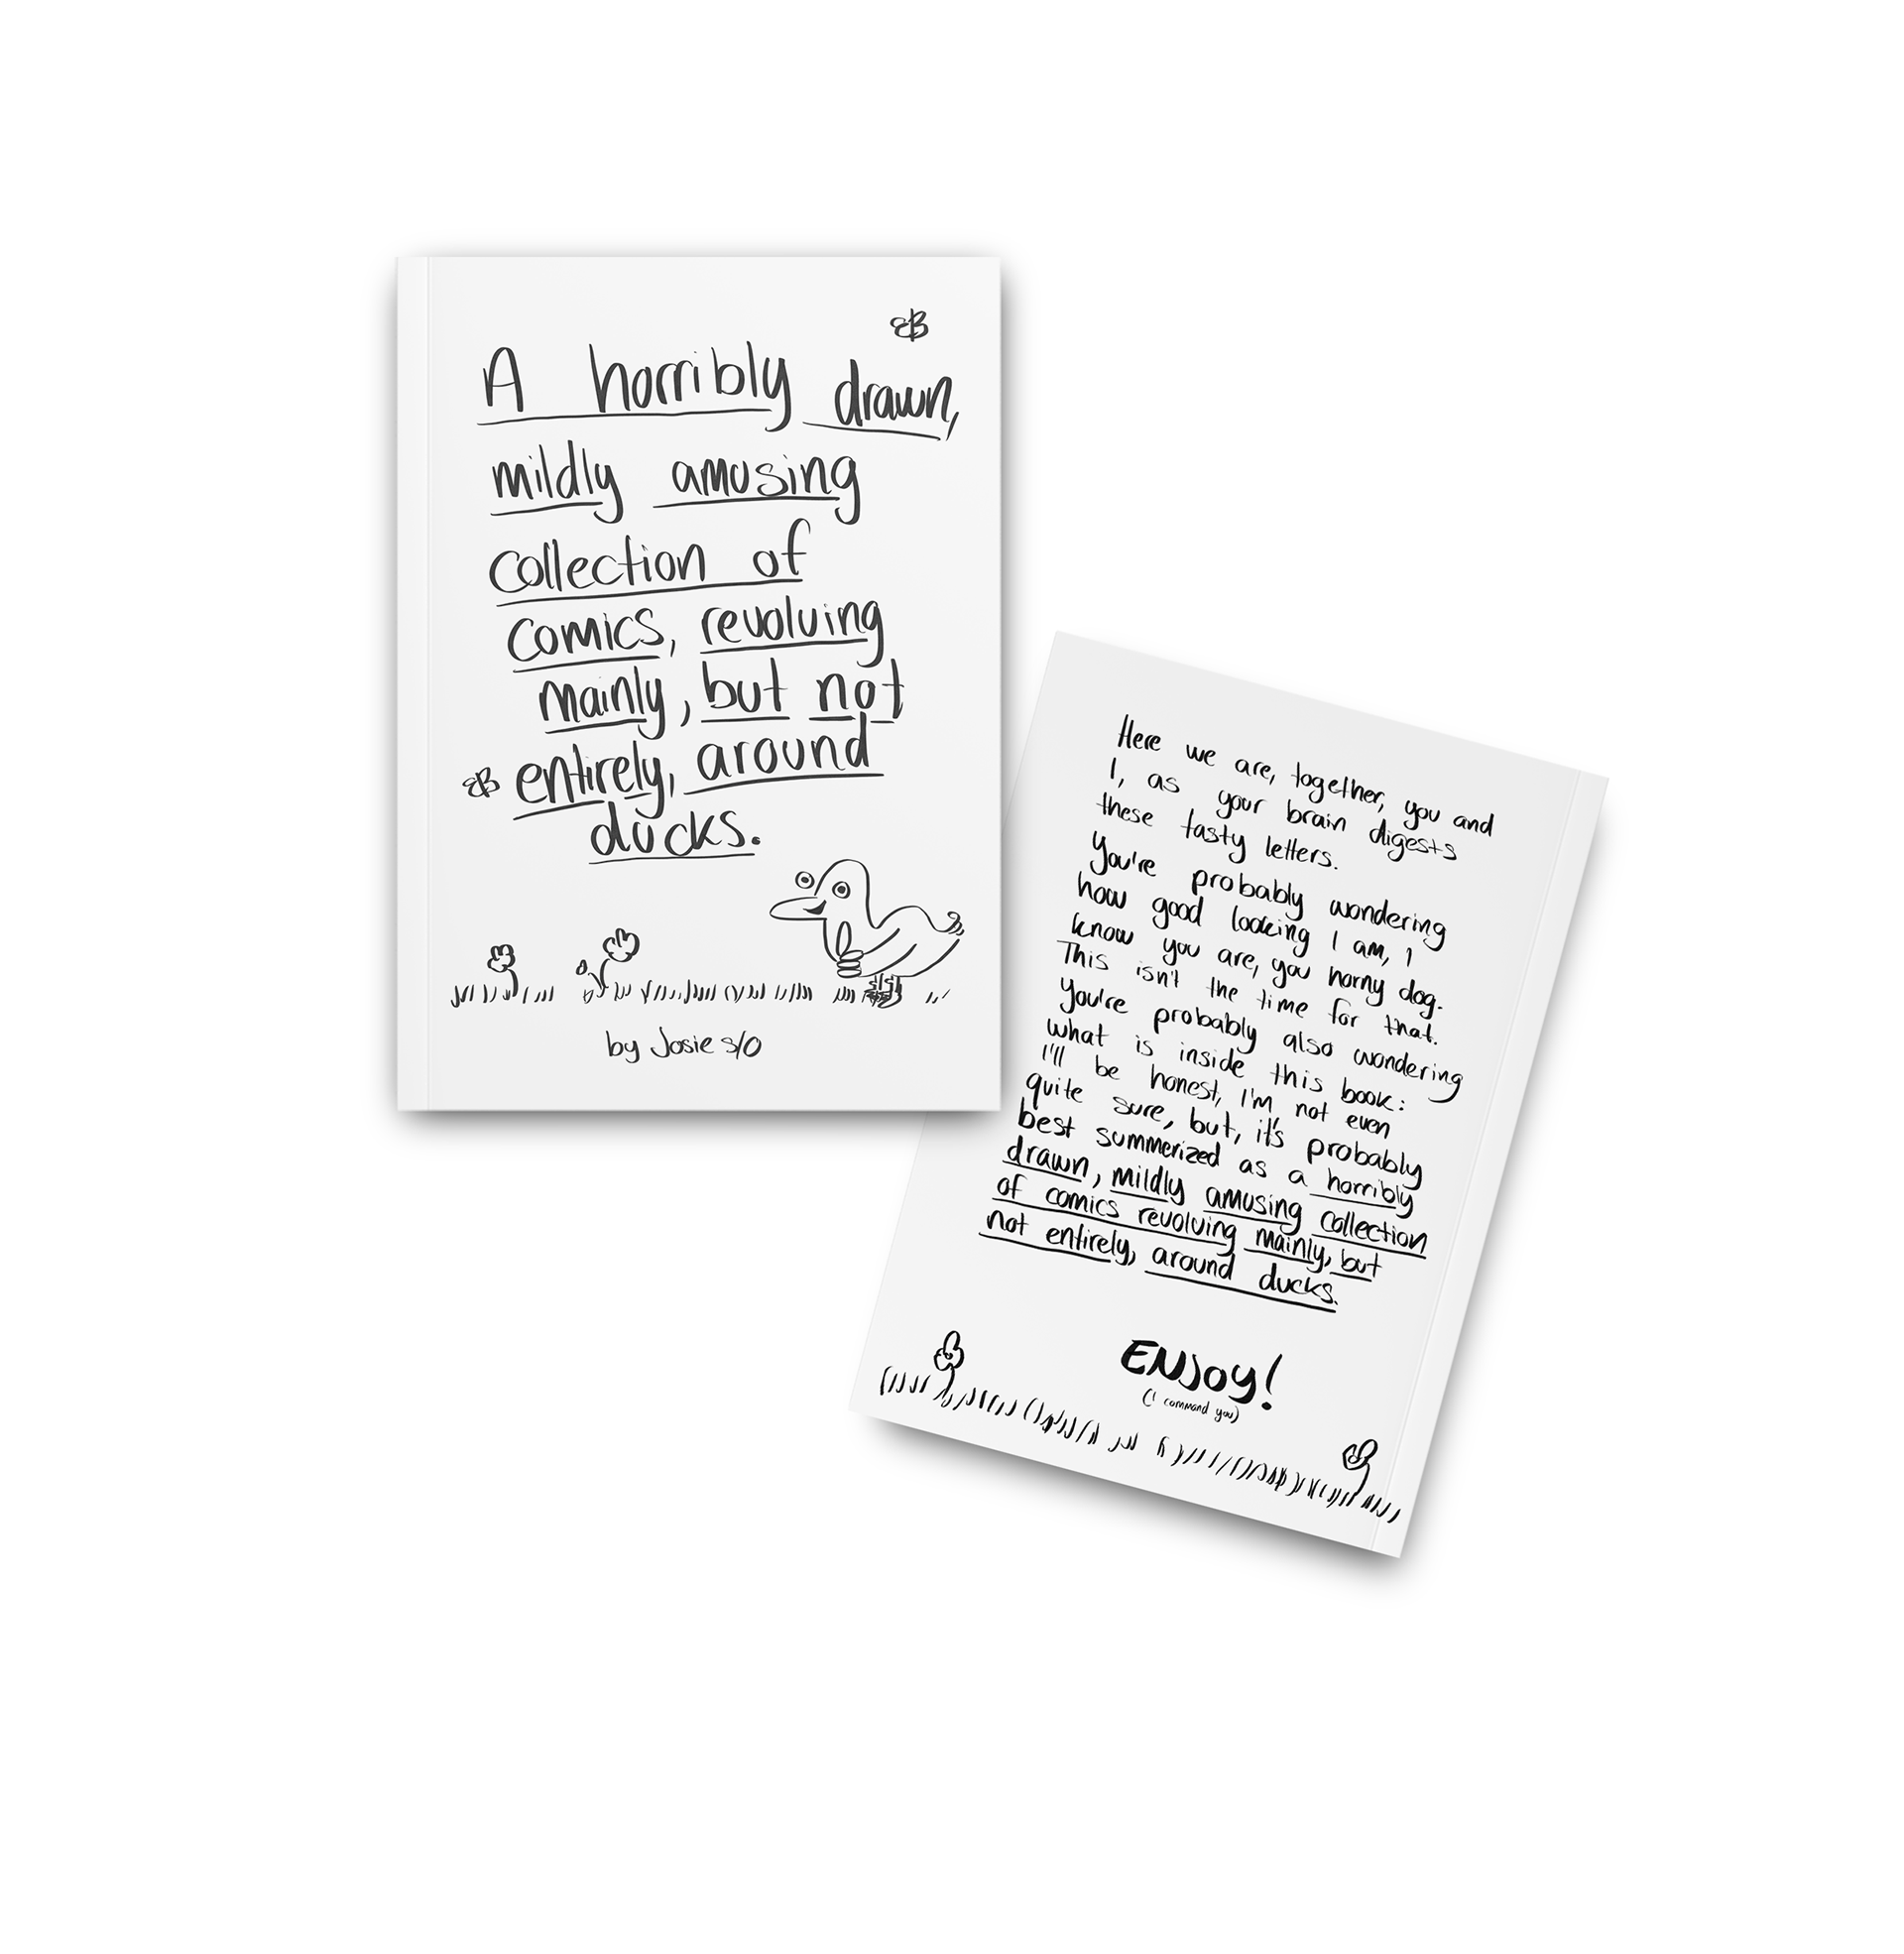 A horribly drawn,
mildly amusing
collection of
comics, revolving
mainly, but not
entirely, around
ducks.
by Josie s/o
Here we are, together, you and
I, as your brain digests
these tasty letters.
You're probably wondering
how good looking I am, I
know you are, you horny dog.
This isn't the time for that.
You're probably also wondering
what is inside this book:
I'll be honest, I'm not even
quite sure, but, it's probably
best summerized as a horribly
drawn, mildly amusing collection
of comics revolving mainly, but
not entirely, around ducks.
ENJOY!
(I command you)